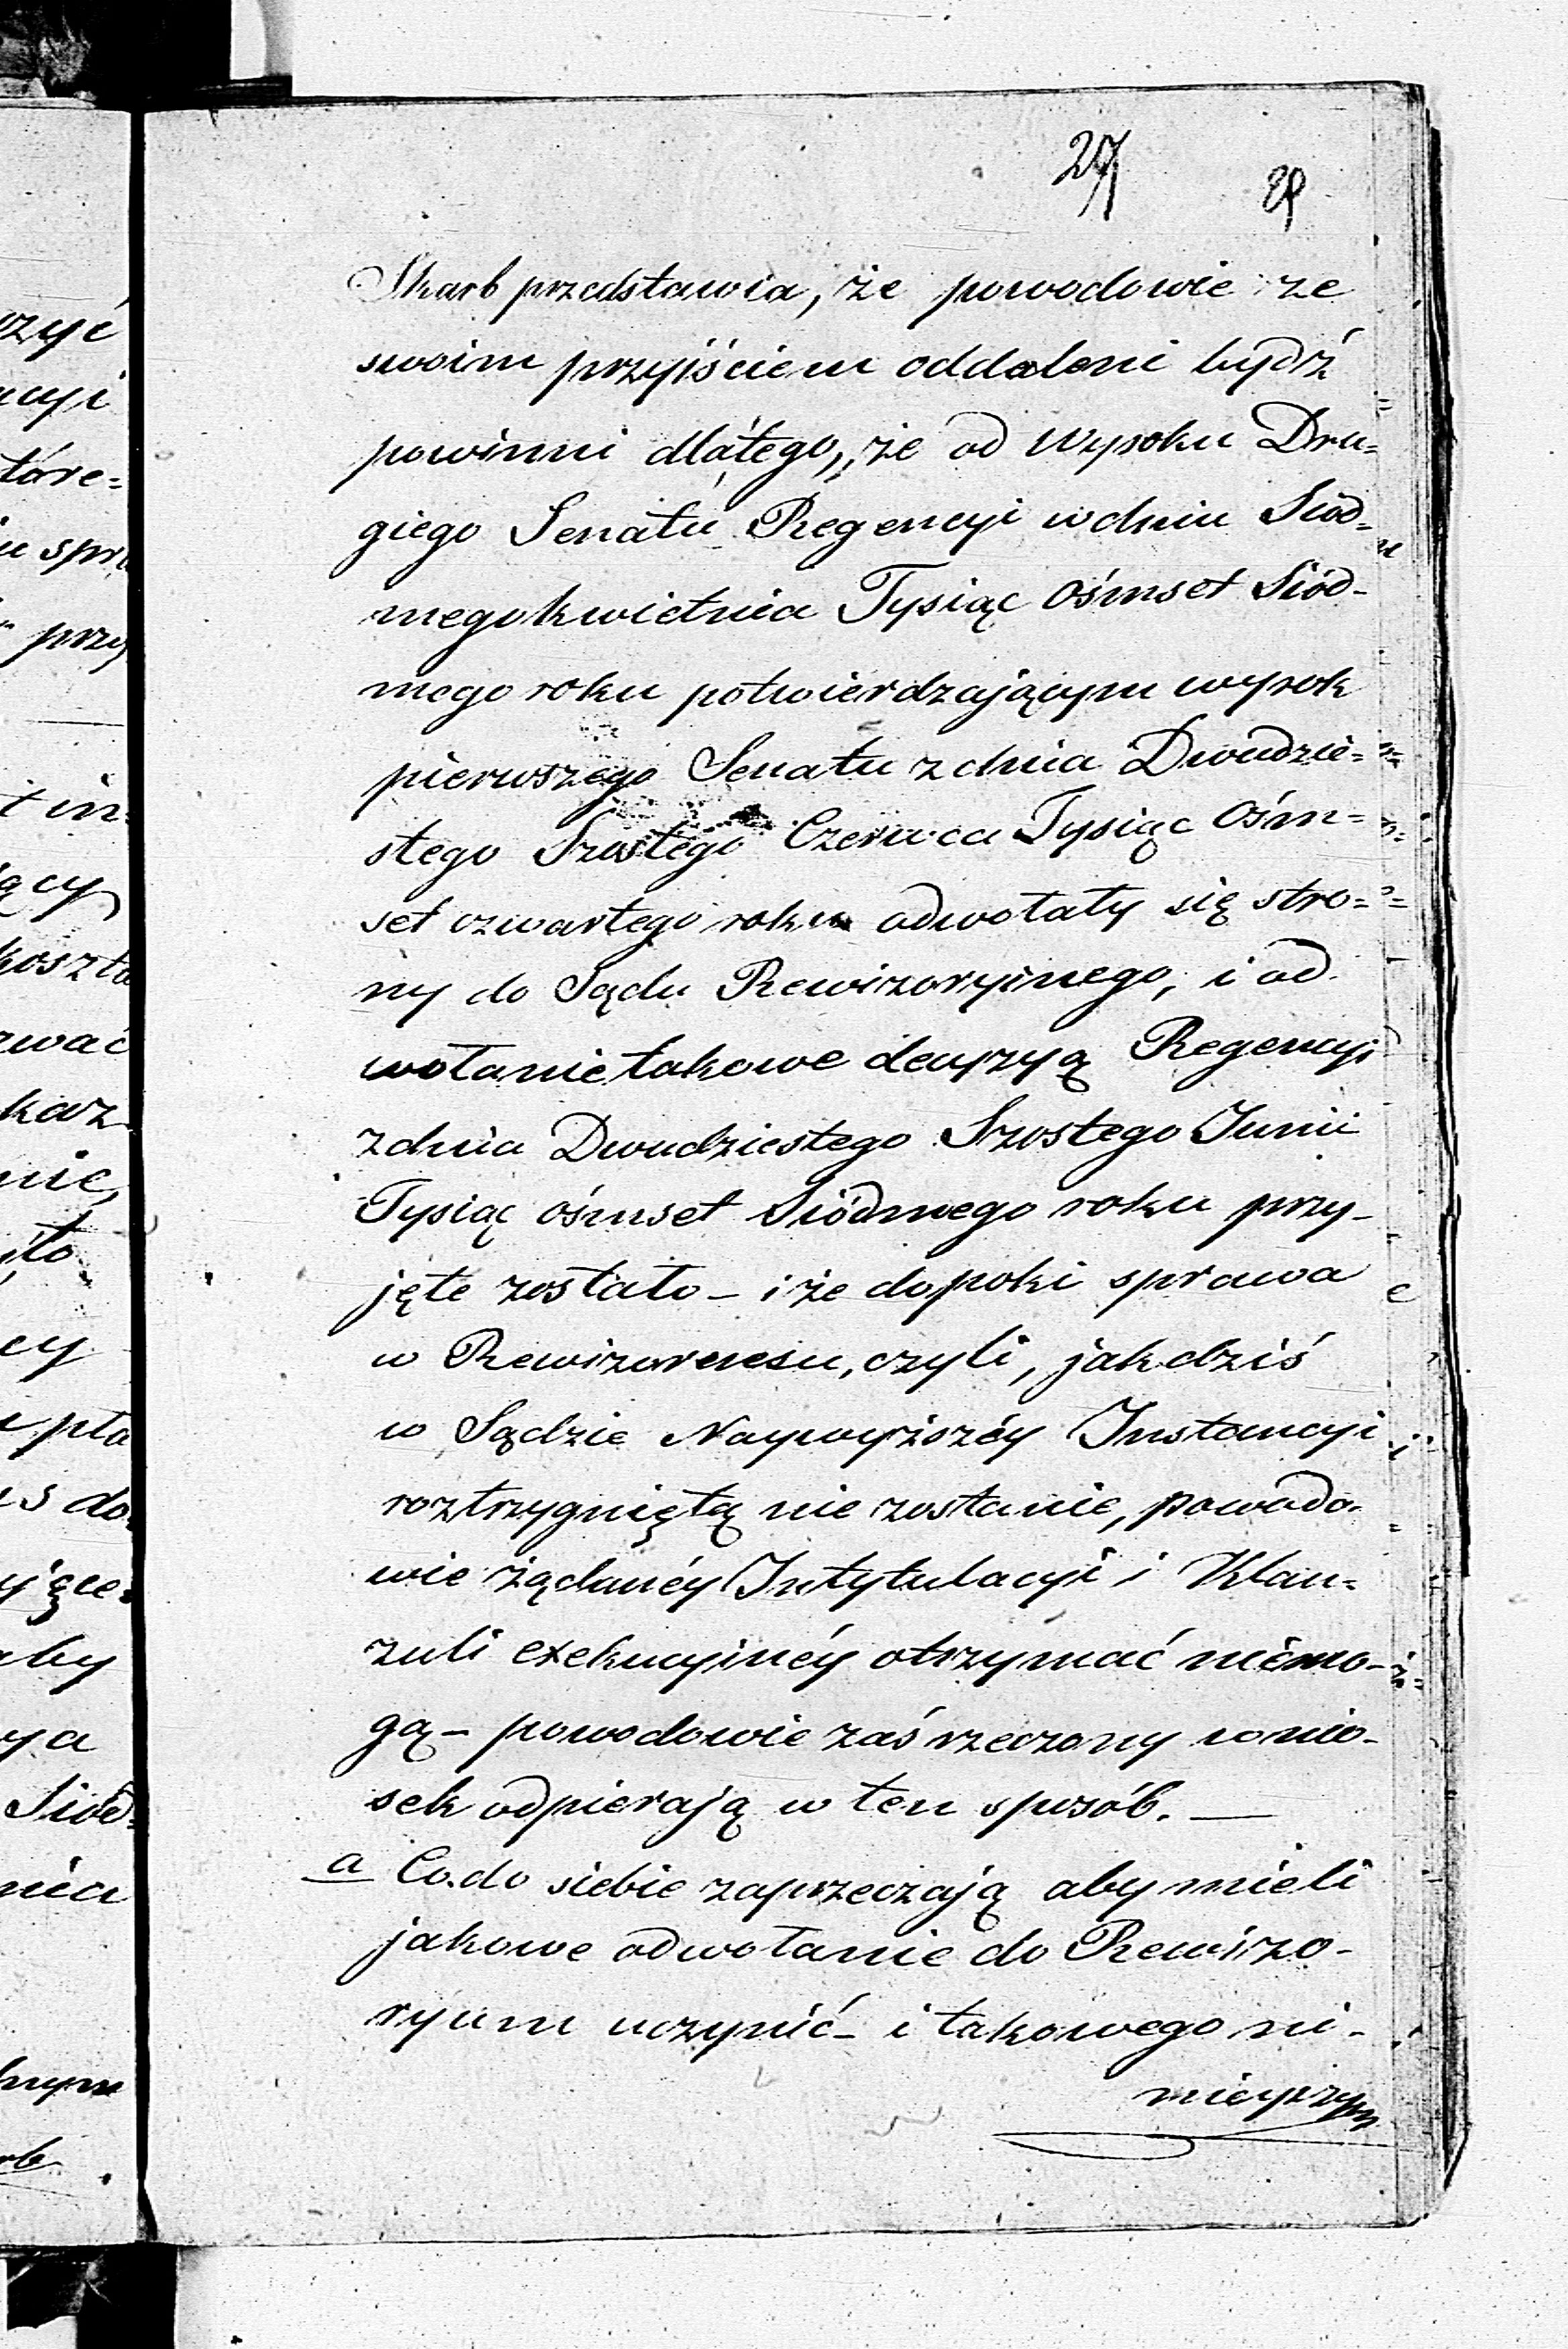 27
29
Skarb przedstawia, że powodowie ze
swoim przyiściem oddaleni bydź
powinni dlátego, że od Wyroku Dru=
giego Senatu Regencyi w dniu Siód=
mego kwietnia Tysiąc Ośmset Siód-
mego roku potwierdzającym wyrok
pierwszego Senatu z dnia Dwudzie=
stego Szóstego Czerwca Tysiąc Ośm=
set czwartego roku odwołały się stro=
ny do Sądu Rewizoryinego, i od
wołanie takowe decyzyą Regencyi
z dnia Dwudziestego Szóstego Junii
Tysiąc ośmset Siódmego roku przy-
jęte zostało - i że dopoki sprawa
w Rewizorenesu, czyli, jak dziś
w Sądzie Naywyższéy Instancyi
roztrzygniętą nie zostanie, powodo=
wie żądanéy Intytulacyi i Klau=
zuli exekucyinéy otrzymać niemo-
gą - powodowie zaś rzeczony wnio-
sek odpierają w ten sposób. —
a Co do siebie zaprzeczają aby mieli
jakowe odwołanie do Rewizo-
ryum uczynić - i takowego ni-